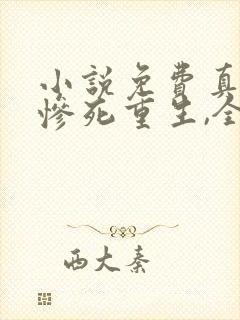 小说免费真
惨死重生,全
西大秦